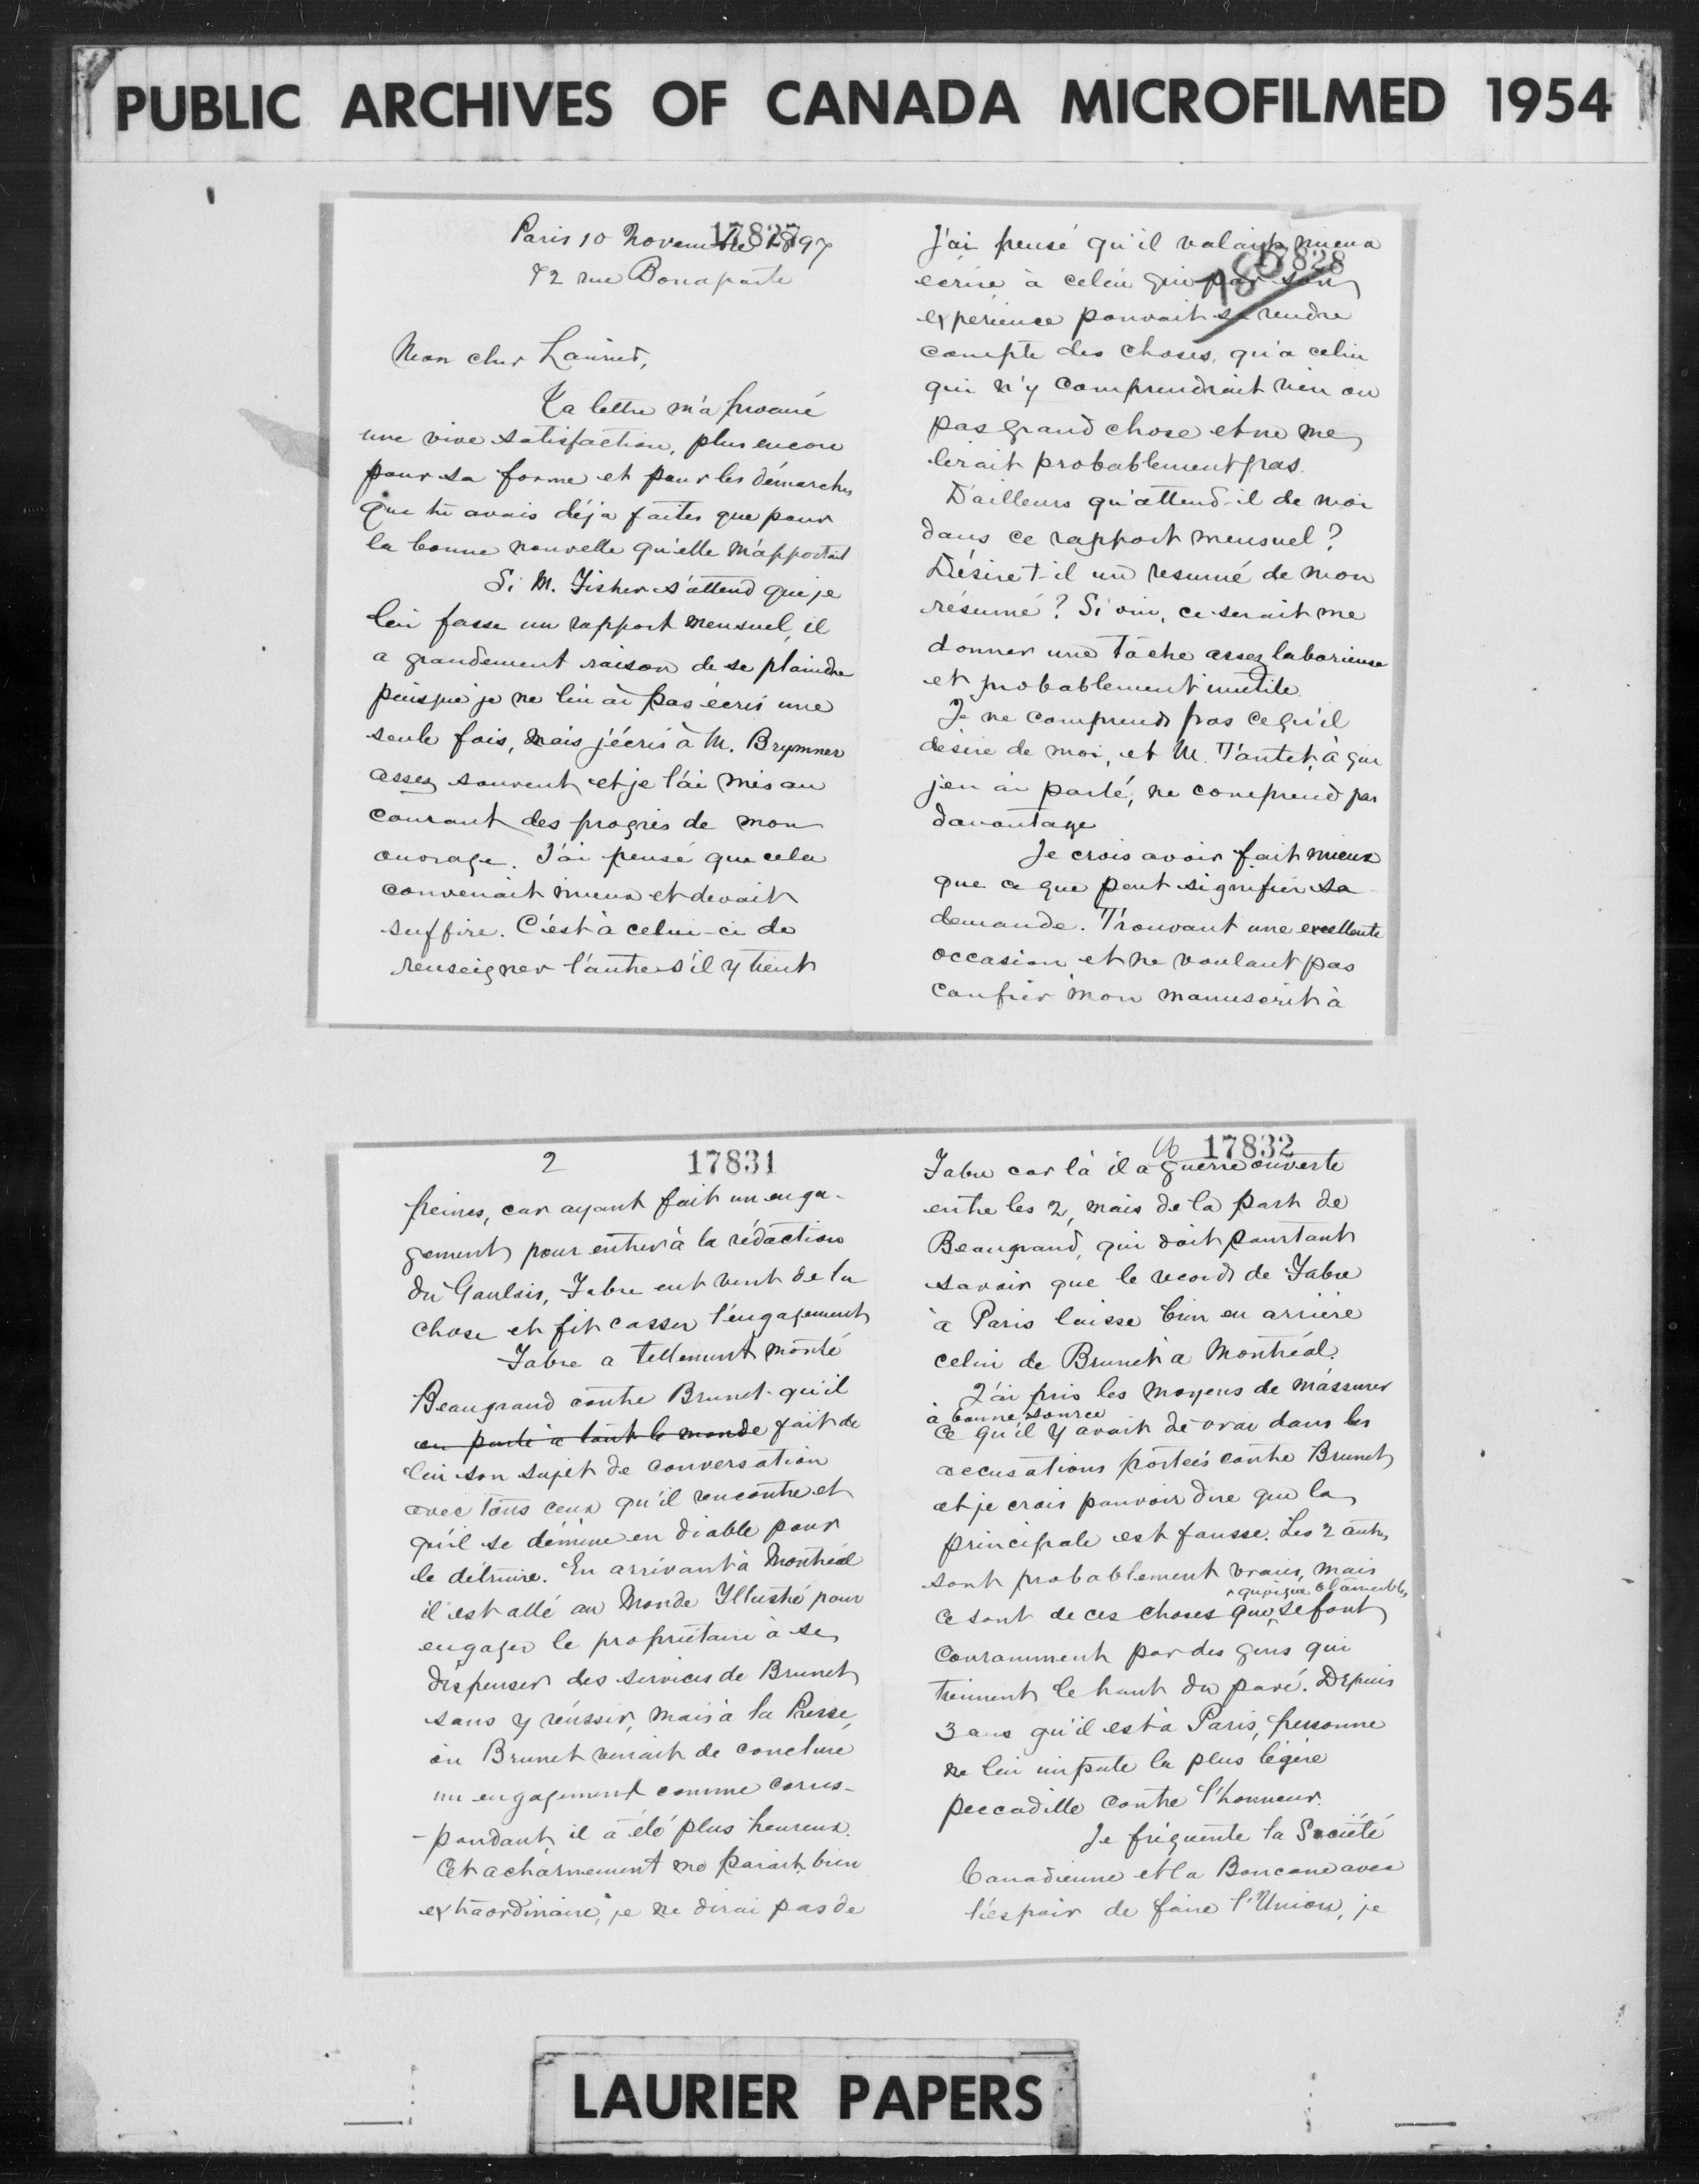 PUBLIC ARCHIVES OF CANADA MICROFILMED 1954
17827
Paris 10 Novembre 1897
72 rue Bonaparte
Mon cher Laurier,
Ta lettre m'a procuré
une vive satisfaction, plus encore
pour sa forme et pour les démarches
que tu avais déjà faites que pour
la bonne nouvelle qu'elle m'apportait
Si M. Fisher s'attend que je
lui fasse un rapport mensuel, il
a grandement raison de se plaindre
puisque je ne lui ai pas écris une
seule fois, mais j'écris à M. Brymner
assez souvent et je l'ai mis au
courant des progrès de mon
ouvrage. J'ai pensé que cela
convenait mieux et devait
suffire. C'est à celui-ci de
renseigner l'autre s'il y tient
17828
J'ai pensé qu'il valait mieux
écrire à celui qui par son
expérience pouvait se rendre
compte des choses, qu'a celui
qui n'y comprendrait rien ou
pas grand chose et ne me
lirait probablement pas.
D'ailleurs qu'attend-il de moi
dans ce rapport mensuel?
Désire t-il un resumé de mon
résumé? Si oui, ce serait me
donner une tâche assez laborieuse
et probablement inutile.
Je ne comprends pas ce qu'il
désire de moi, et M. Tantet, à qui
j'en ai parlé, ne comprend pas
davantage
Je crois avoir fait mieux
que ce que peut signifier sa
demande. Trouvant une excellente
occasion et ne voulant pas
confier mon manuscrit à
2
17831
peines, car ayant fait un enga-
gement pour entrer à la rédaction
du Gaulois, Fabre eut vent de la
chose et fit casser l'engagement
Fabre a tellement monté
Beaugrand contre Brunet qu'il
en parle à tout le monde fait de
lui son sujet de conversation
avec tous ceux qu'il rencontre et
qu'il se démène en diable pour
le détruire. En arrivant à Montréal
il est allé au Monde Illustré pour
engager le propriétaire à se
dispenser des services de Brunet
sans y réussir, mais à la Presse,
où Brunet venait de conclure
un engagement comme corres-
-pondant il a été plus heureux.
Cet acharnement me parait bien
extraordinaire, je ne dirai pas de
17832
Fabre car là il a guerre ouverte
entre les 2, mais de la part de
Beaugrand, qui doit pourtant
savoir que le record de Fabre
à Paris laisse bien en arrière
celui de Brunet a Montréal.
J'ai pris les moyens de m'assurer
à bonne source
ce qu'il y avait de vrai dans les
accusations portées contre Brunet
et je crois pouvoir dire que la
principale est fausse. Les 2 autres
sont probablement vraies, mais
quoique blamables
ce sont de ces choses que se font
couramment par des gens qui
tiennent le haut du pavé. Depuis
3 ans qu'il est à Paris, personne
ne lui impute la plus légère
peccadille contre l'honneur.
Je fréquente la Société
Canadienne et la Boucane avec
l'espoir de faire l'Union, je
LAURIER PAPERS